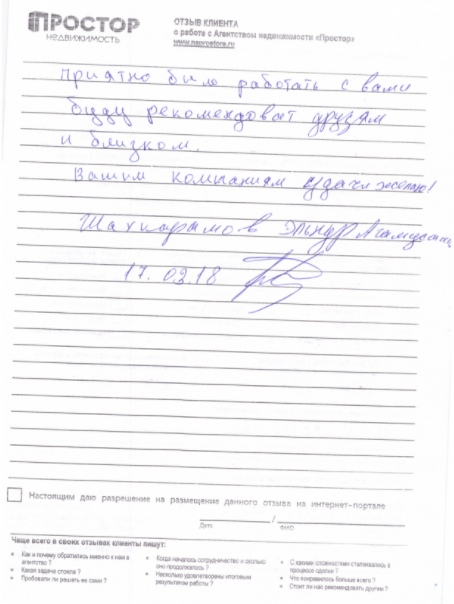 ПРОСТОР
НЕДВИЖИМОСТЬ
ОТЗЫВ КЛИЕНТА
о работе с Агентством недвижимости «Простор»
www.naprostore.ru
Приятно было работать с вами
буду рекомендоват друзям
и близком.
Вашим компаниям удачи желаю!
Эльнур
17.03.18
Настоящим даю разрешение на размещение данного отзыва на интернет-портале
/
дтп
фио
Чаще всего в своих отзывах клиенты пишут:
Как и почему обратились именно к нам в агентство ?
Какая задача стояла ?
Пробовали ли решать ее сами ?
Когда началось сотрудничество и сколько оно продолжалось ?
Насколько удовлетворены итоговым результатом работы ?
С какими сложностями сталкивались в процессе сделки ?
Что понравилось больше всего ?
Стоит ли нас рекомендовать другим ?